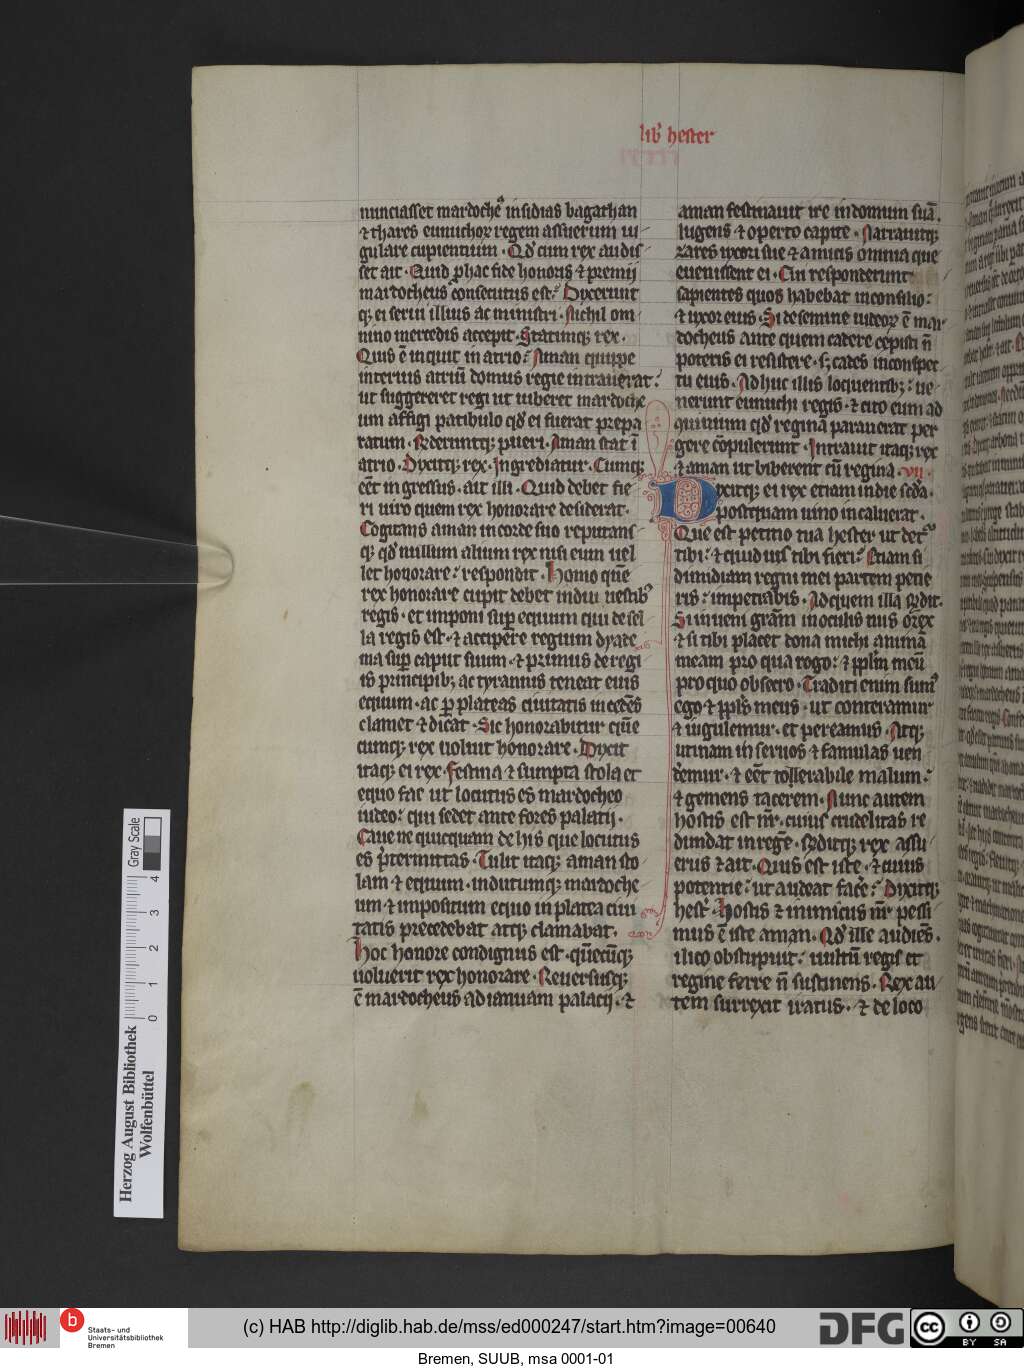 lib hester
nunciasset mardoche insidias bagathan
⁊ thares eunuchoꝝ regem assuerum iu
gulare cupientium · Qd̓ cum rex audis
set ait · Quid ꝓ hac fide honoris ⁊ premij
mardocheus cōsecutus est? Dyxerunt
qꝫ ei serui illius ac ministri · Nichil om
nino mercedis accepit · Statimqꝫ rex ·
Quis ē inquit in atrio? Aman quippe
interius atriū domus regie intrauerat:
ut suggereret regi ut iuberet mardoche
um affigi patibulo qd̓ ei fuerat prepa
ratum · Rderuntqꝫ pueri · Aman stat ī
atrio · Dyxitqꝫ rex · Ingrediatur · Cumqꝫ
eēt ingressus · ait illi · Quid debet fie
ri uiro quem rex honorare desiderat ·
Cogitans aman in corde suo reputans
qꝫ qd̓ nullum alium rex nisi eum uel
let honorare: respondit · Homo quē
rex honorare cupit debet indui uestibꝰ
regis · et imponi suꝑ equum qui de sel
la regis est · ⁊ accipere regium dyade
ma suꝑ caput suum · ⁊ primus de regi
is principibꝫ ac tyrannis teneat eius
equum · ac ꝑ plateas ciuitatis incedēs
clamet ⁊ dicat · Sic honorabitur quē
cumqꝫ rex uoluit honorare · Dyxit
itaqꝫ ei rex · festina ⁊ sumpta stola et
equo fac ut locutus es mardocheo
iudeo: qui sedet ante fores palatij ·
Caue ne quicquam de his que locutus
es p̄termittas · Tulit itaqꝫ aman sto
lam ⁊ equum · indutumqꝫ mardoche
um ⁊ impositum equo in platea ciui
tatis precedebat atqꝫ clamabat ·
Hoc honore condignus est · quēcūqꝫ
uoluerit rex honorare · Reuersusqꝫ
ē mardocheus ad ianuam palacij · ⁊
aman festinauit ire in domum suā ·
lugens ⁊ operto capite · Narrauitqꝫ
zares uxori sue ⁊ amicis omnia que
euenissent ei · Cui responderunt
sapientes quos habebat in consilio:
⁊ uxor eius · Si de semine iudeoꝝ ē mar
docheus ante quem cadere cepisti nō
poteris ei resistere · sꝫ cades in conspec
tu eius · Adhuc illis loquentibꝫ: ue
nerunt eunuchi regis · ⁊ cito eum ad
quiuium qd̓ regina parauerat per
gere cōpulerunt · Intrauit itaqꝫ rex
⁊ aman ut biberent cū regina · vii ·
Dyxitqꝫ ei rex etiam in die scd̓a ·
postquam uino incaluerat ·
Que est petitio tua hester ut det
tibi: ⁊ quid uis tibi fieri? Etiam si
dimidiam regni mei partem petie
ris: impetrabis · Ad quem illa rn̄dit ·
Si inueni grām in oculis tuis o rex
⁊ si tibi placet dona michi animā
meam pro qua rogo: ⁊ ppl̄m meū
pro quo obsecro · Traditi enim sumꝰ
ego ⁊ ppl̄s meus · ut conteramur
⁊ iugulemur · et pereamus · Atqꝫ
utinam in seruos ⁊ famulas uen
deremur · ⁊ eēt tollerabile malum:
⁊ gemens tacerem · Nunc autem
hostis est nr̄ · cuius crudelitas re
dundat in regē · Rn̄ditqꝫ rex assu
erus ⁊ ait · Quis est iste · ⁊ cuius
potentie: ut audeat facere? Dyxitqꝫ
hest̓ · Hostis ⁊ inimicus nr̄ pessi
mus ē iste aman · Qd̓ ille audiens ·
ilico obstupuit: uultū regis et
regine ferre nō sustinens · Rex au
tem surrexit iratus · ⁊ de loco
Herzog August Bibliothek
Wolfenbüttel
0 1 2 3 4
Gray Scale
b
Staats- und
Universitätsbibliothek
Bremen
(c) HAB http://diglib.hab.de/mss/ed000247/start.htm?image=00640
DFG
cc BY SA
Bremen, SUUB, msa 0001-01